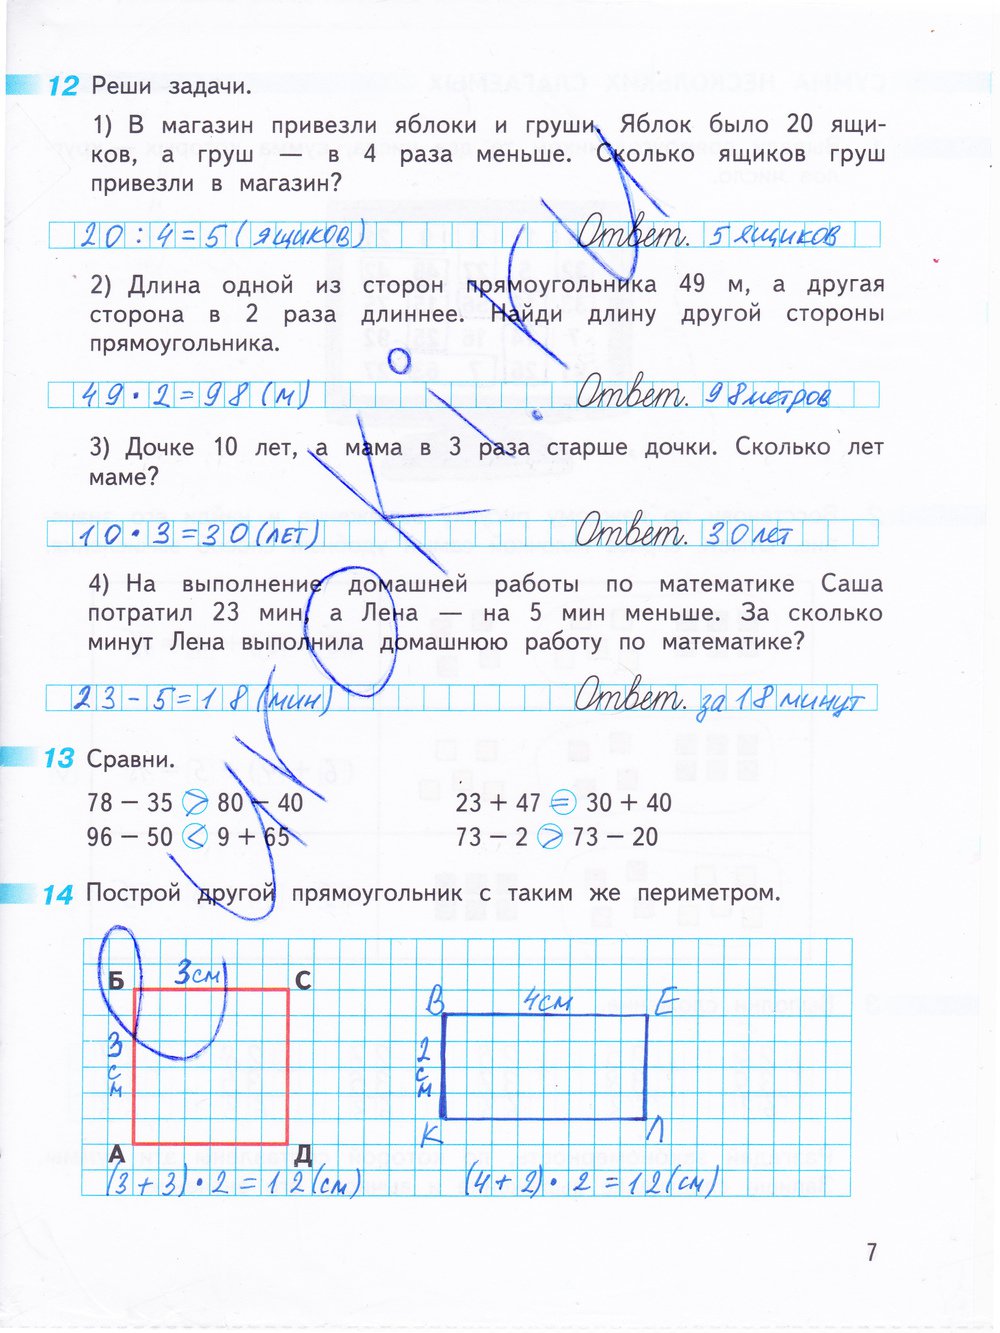 12 Реши задачи.
1) В магазин привезли яблоки и груши. Яблок было 20 ящи-
ков, а груш — в 4 раза меньше. Сколько ящиков груш
привезли в магазин?
20 : 4 = 5 (ящиков) Ответ. 5 ящиков
2) Длина одной из сторон прямоугольника 49 м, а другая
сторона в 2 раза длиннее. Найди длину другой стороны
прямоугольника.
49 · 2 = 98 (м) Ответ. 98 метров
3) Дочке 10 лет, а мама в 3 раза старше дочки. Сколько лет
маме?
10 · 3 = 30 (лет) Ответ. 30 лет
4) На выполнение домашней работы по математике Саша
потратил 23 мин, а Лена — на 5 мин меньше. За сколько
минут Лена выполнила домашнюю работу по математике?
23 - 5 = 18 (мин) Ответ. за 18 минут
13 Сравни.
78 − 35 > 80 − 40 23 + 47 = 30 + 40
96 − 50 < 9 + 65 73 − 2 > 73 − 20
14 Построй другой прямоугольник с таким же периметром.
Б 3см С В 4см Е
3см 2см
А Д К Л
(3+3) · 2 = 12(см) (4+2) · 2 = 12(см)
7